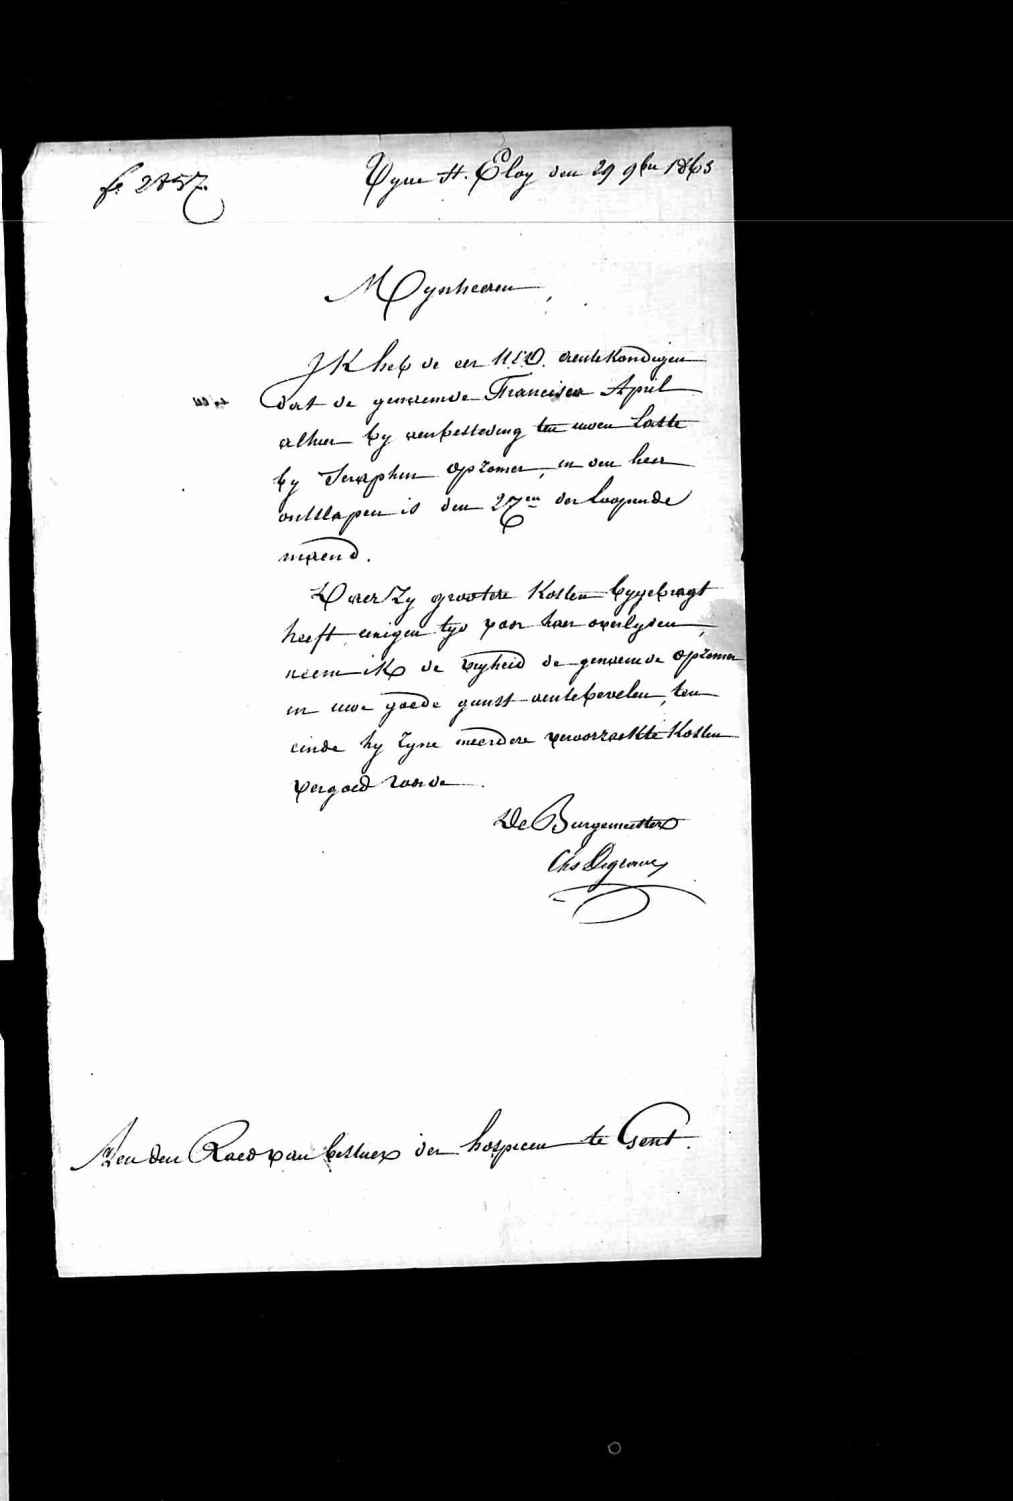 fo 2857
Vyve St. Eloy den 29 9bre 1863
Mynheeren,
Ik heb de eer U.E.D. aentekondigen
dat de genaemde Francisca April
alhier by aenbesteding ten uwen laste
by Seraphin Opsomer, in den heer
ontslapen is den 27en der loopende
maend.
Daer zy grootere kosten bygebragt
heeft eenigen tyd voor haer overlyden,
neem ik de vryheid de genaemde Opsomer
in uwe goede gunst aentebevelen, ten
einde hy zyne meerdere veroorzaekte kosten
vergoed worde.
De Burgemeester
Chs Degrave
Aen den Raed van bestuer der hospicen te Gent.